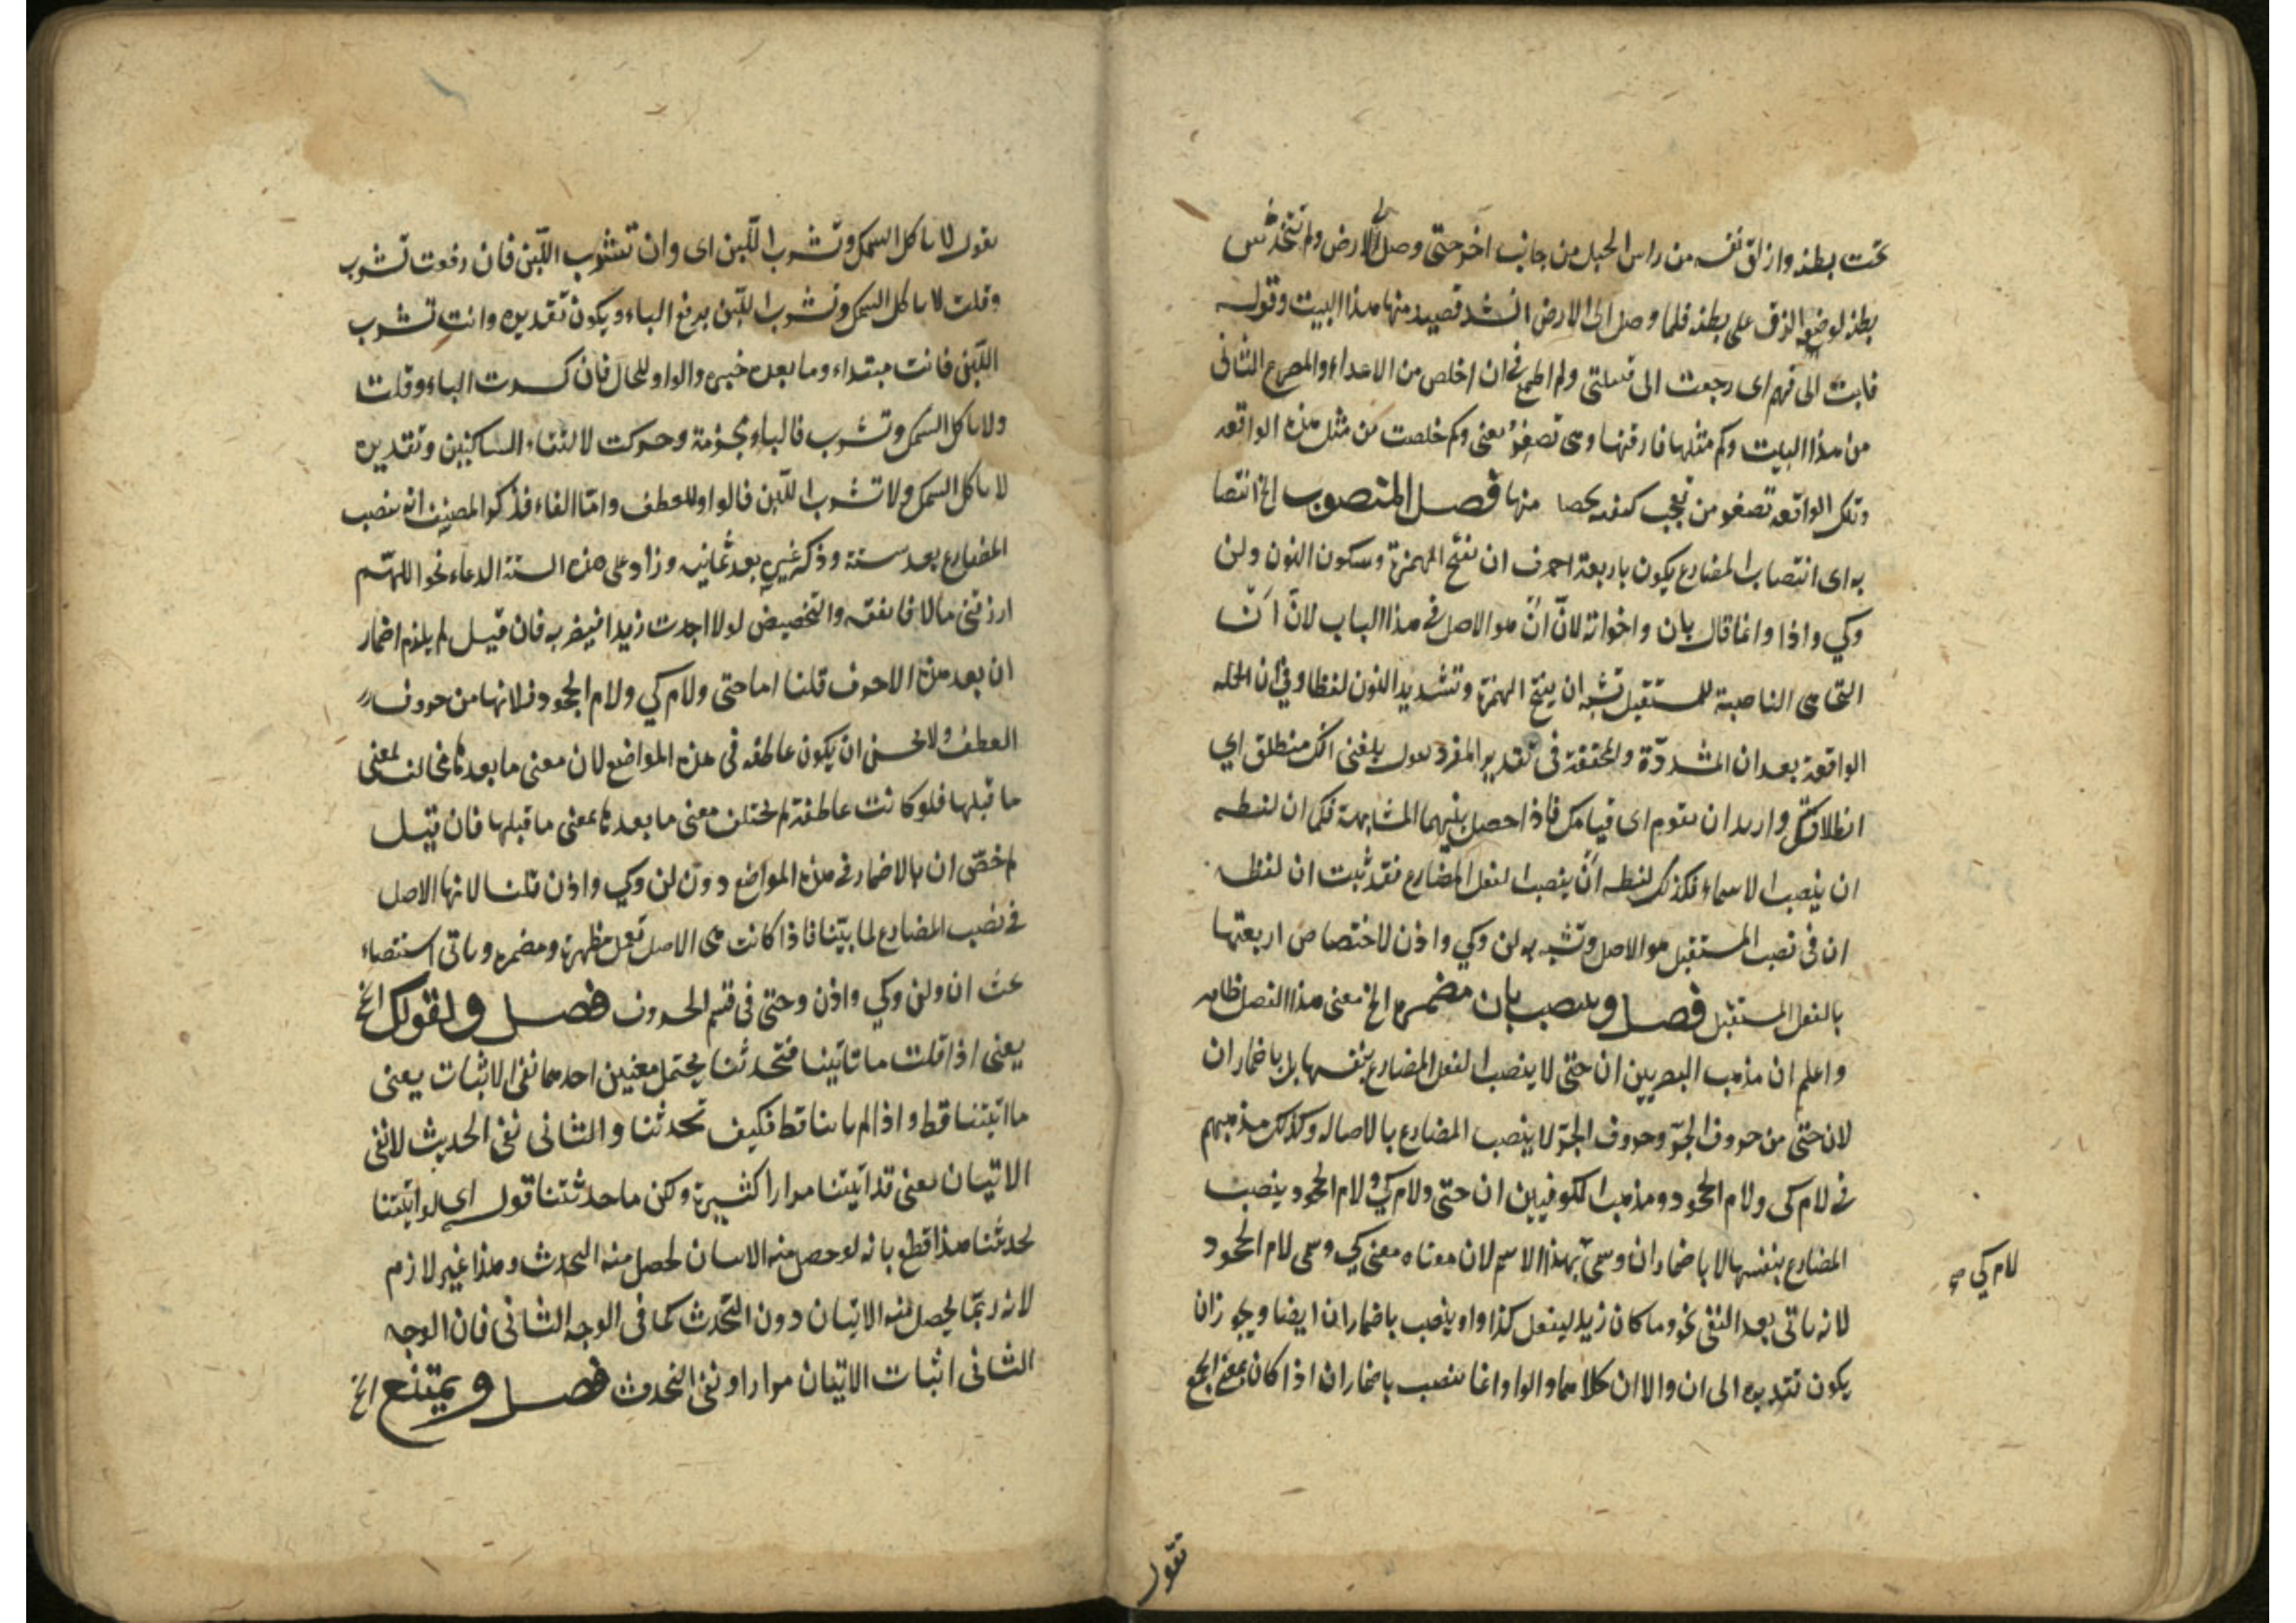 تحت بطنه وازلق نفسه من راس الجبل من جانب اخر حتى وصل الى الارض ولم تتخدش
بطنه لوضعه الزق على بطنه فلما وصل الى الارض انشد قصيدة منها هذا البيت وقوله
فابت الى فهم اى رجعت الى قبيلتى ولم اطمع فى ان اخلص من الاعداء والمصرع الثانى
من هذا البيت وكم مثلها فارقتها وهى تصفر يعنى وكم خلصت من مثل هذه الواقعة
وتلك الواقعة تصفر من تعجب كيفية منها فصل المنصوب الخ انتصا
به اى انتصاب المضارع يكون باربعة احرف ان بفتح الهمزة وسكون النون ولن
وكي واذا وانما قال بان واخواته لانّ انْ هو الاصل فى هذا الباب لانّ انْ
التى هى الناصبة للمستقبل تشبه ان بفتح الهمزة وتشديد النون لفظا وفى ان الجملة
الواقعة بعد ان المشددة والمخففة فى تقدير المفرد تقول بلغنى انك منطلق اي
انطلاقك واريد ان تقوم اى قيامك فاذا حصل بينهما المشابهة فكما ان لفظه
ان ينصب الاسماء فكذلك لفظه انْ ينصب الفعل المضارع فقد ثبت ان لفظه
ان فى نصب المستقبل هو الاصل وتشبه به لن وكي واذن لاختصاص اربعتها
بالفعل المستقبل فصل وينصب بان مضمرة الخ معنى هذا الفصل ظاهر
واعلم ان مذهب البصريين ان حتى لا ينصب الفعل المضارع بنفسها بل باضمار ان
لان حتى من حروف الجرّ وحروف الجرّ لا ينصب المضارع بالاصالة وكذلك مذهبهم
فى لام كى ولام الجحود ومذهب الكوفيين ان حتى ولام كي ولام الجحود ينصب
المضارع بنفسها لا باضمار ان وسمى بهذا الاسم لان معناه معنى كي وسمى لام الجحود
لام كي صح
لانه ياتى بعد النفى نحو وما كان زيد ليفعل كذا واو ينصب باضمار ان ايضا ويجوز ان
يكون تقديره الى ان والا ان كلاهما والواو انما تنصب باضمار ان اذا كان بمعنى الجمع
تقول
تقول لا تاكل السمك وتشرب اللّبن اى وان تشرب اللّبن فان رفعت تشرب
وقلت لا تاكل السمك وتشرب اللّبن برفع الباء ويكون تقديره وانت تشرب
اللّبن فانت مبتداء وما بعده خبره والواو للحال فان كسرت الباء وقلت
ولا تاكل السمك وتشرب فالباء مجزومة وحركت لالتقاء الساكنين وتقديره
لا تاكل السمك ولا تشرب اللّبن فالواو للعطف وامّا الفاء فذكر المصنف انه ينصب
المضارع بعد ستة وذكر غيره بعد ثمانية وزاد على هذه الستة الدعاء نحو اللهمّ
ارزقنى مالا فانفقه والتخضيض لولا اجدت زيدا فيضربه فان قيل لم يلزم اضمار
ان بعد هذه الاحرف قلنا اما حتى ولام كي ولام الجحود فلانها من حروف
العطف ولا يحسن ان يكون عاطفة فى هذه المواضع لان معنى ما بعدها مخالف لمعنى
ما قبلها فلو كانت عاطفة لم يختلف معنى ما بعدها بمعنى ما قبلها فان قيل
لم خصّ ان بالاضمار فى هذه المواضع دون لن وكي واذن قلنا لانها الاصل
فى نصب المضارع لما بيّنا فاذا كانت هى الاصل تعمل مظهرة ومضمرة وياتى استقصاء
بحث ان ولن وكي واذن وحتى فى قسم الحروف فصل ولقولك الخ
يعنى اذا قلت ما تاتينا فتحدثنا يحتمل معنيين احدهما نفى الاثبات يعنى
ما اتيتنا قط واذا لم تاتنا قط فكيف تحدثنا والثانى نفى الحديث لا نفى
الاتيان يعنى قد اتيتنا مرارا كثيرة ولكن ما حدثتنا قوله اى لو اتيتنا
لحدثتنا هذا قطع بانه لو حصل منه الاتيان لحصل منه التحدث وهذا غير لازم
لانه ربّما يحصل منه الاتيان دون التحدث كما فى الوجه الثانى فان الوجه
الثانى اثبات الاتيان مرارا ونفى التحدث فصل ويمتنع الخ